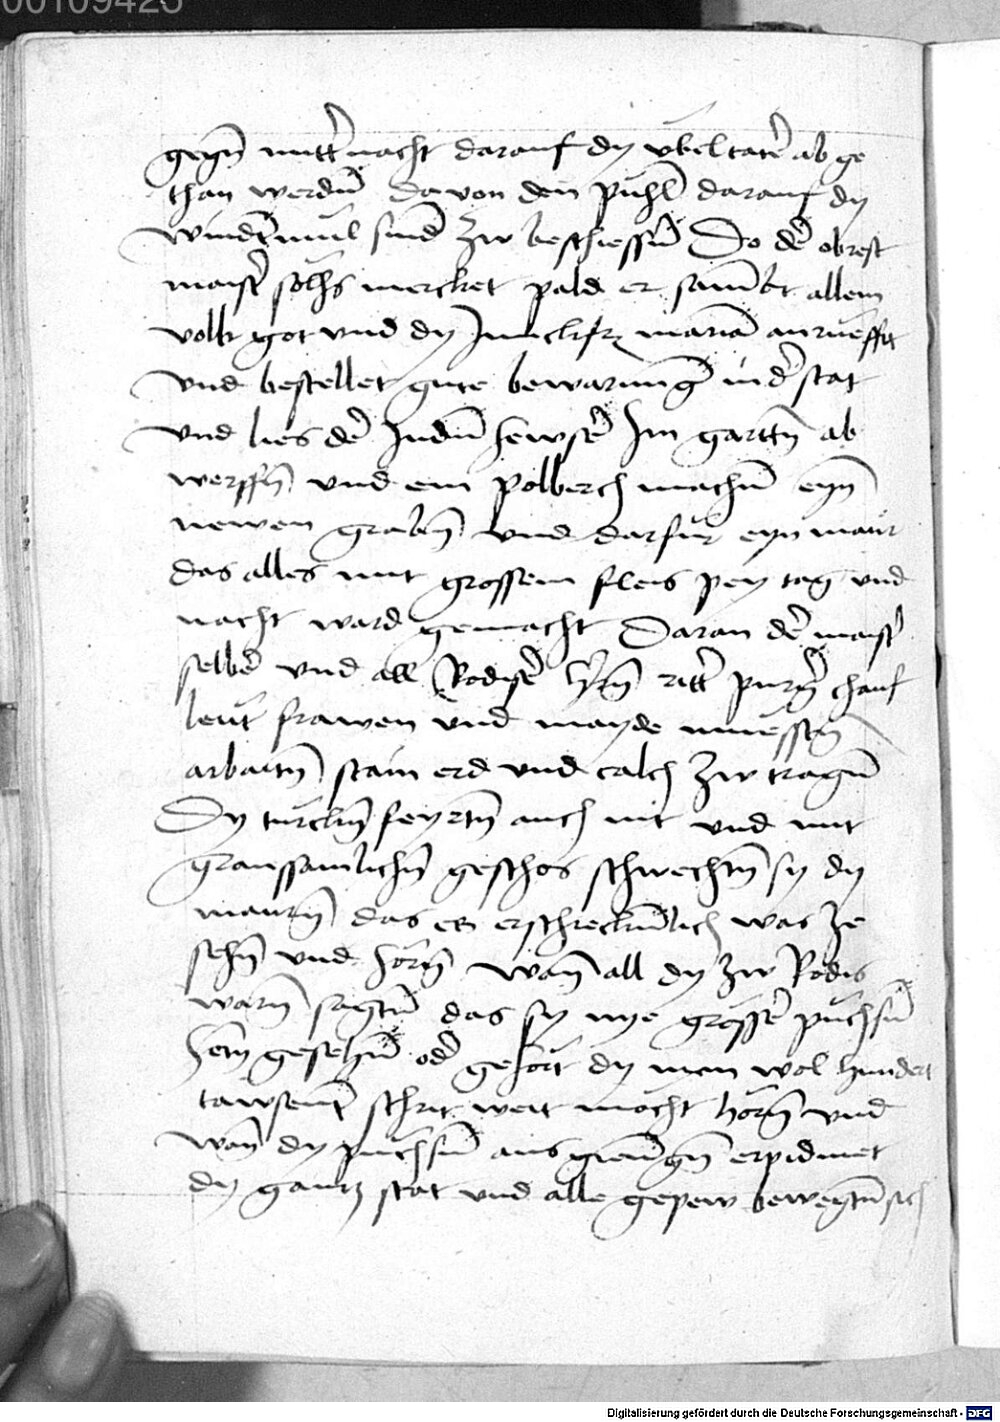 00109425
gegn̄ mittnacht darauf dy vbeltatẽr ab ge
than werdñ Da von den puhl̃ darauf dy
windtmul sind zw beschiessñ Do dẽr obrest
maistr̃ solhs mercket pald er sambt allem
volkt got vnd dy Junckfr̃ maria anrueffet
vnd bestellet gute bewarung in dr̃ stat
vnd lies dẽr Judñ hewsẽr Im garttn̄ ab
werffn̄ vnd ein polberch machñ eyn̄
newen grabn̄ vnd darfur eyn maur
das alles mit grossem fleis pey tag vnd
nacht ward gemacht Daran dẽr maistr̃
selbẽr vnd all Rodisẽr hrn̄ rittr̃ purgr̃ chauf
leut frawen vnd mayde muesstn̄
arbaitn̄ stain erd vnd calch zw tragñ
Dy turckn̄ feyrtn̄ auch nit vnd mit
graussamlichn̄ geschos schwechtn̄ sy dy
maurn̄ das es erschreckñlich was ze
sehn̄ vnd horn̄ wan̄ all dy zw Rodis
warn̄ sagtñ das sy nye grossẽr puchsñ
hetn̄ gesehñ odẽr gehort dy men wol hundert
tawsent schrit weit mocht horn̄ vnd
wan̄ dy puchsñ aus giengn̄ erpidmet
dy gantz stat vnd alle gepew bewegtñ sich
Digitalisierung gefördert durch die Deutsche Forschungsgemeinschaft - DFG